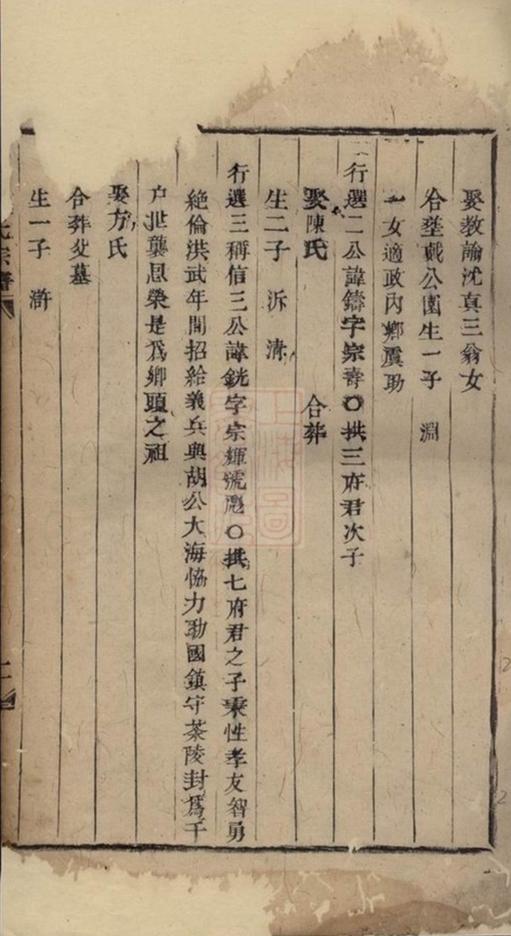 娶教諭沈真三翁女
合塟戯公園生一子 淵
一女適政內鄉虞助
行選二公諱鑄字宗壽〇拱三府君次子
娶陳氏 合葬
生二子 泝 淸
行選三稱信三公諱銑字宗輝號彪〇拱七府君之子秉性孝友智勇
絶倫洪武年間招給義兵與胡公大海恊力勷國鎮守茶陵封爲千
户世襲恩榮是爲鄉頭之祖
娶方氏
合葬父墓
生一子 滸
氏宗譜